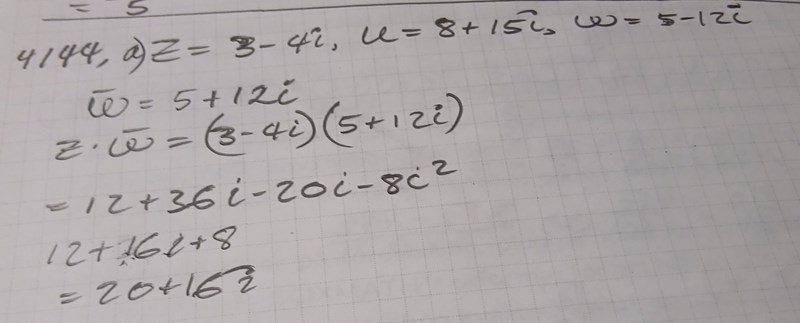 = 5
4144, a) z = 3-4i, u = 8+15i, w = 5-12i
w̄ = 5+12i
z·w̄ = (3-4i)(5+12i)
= 12+36i-20i-8i²
12+16i+8
= 20+16i